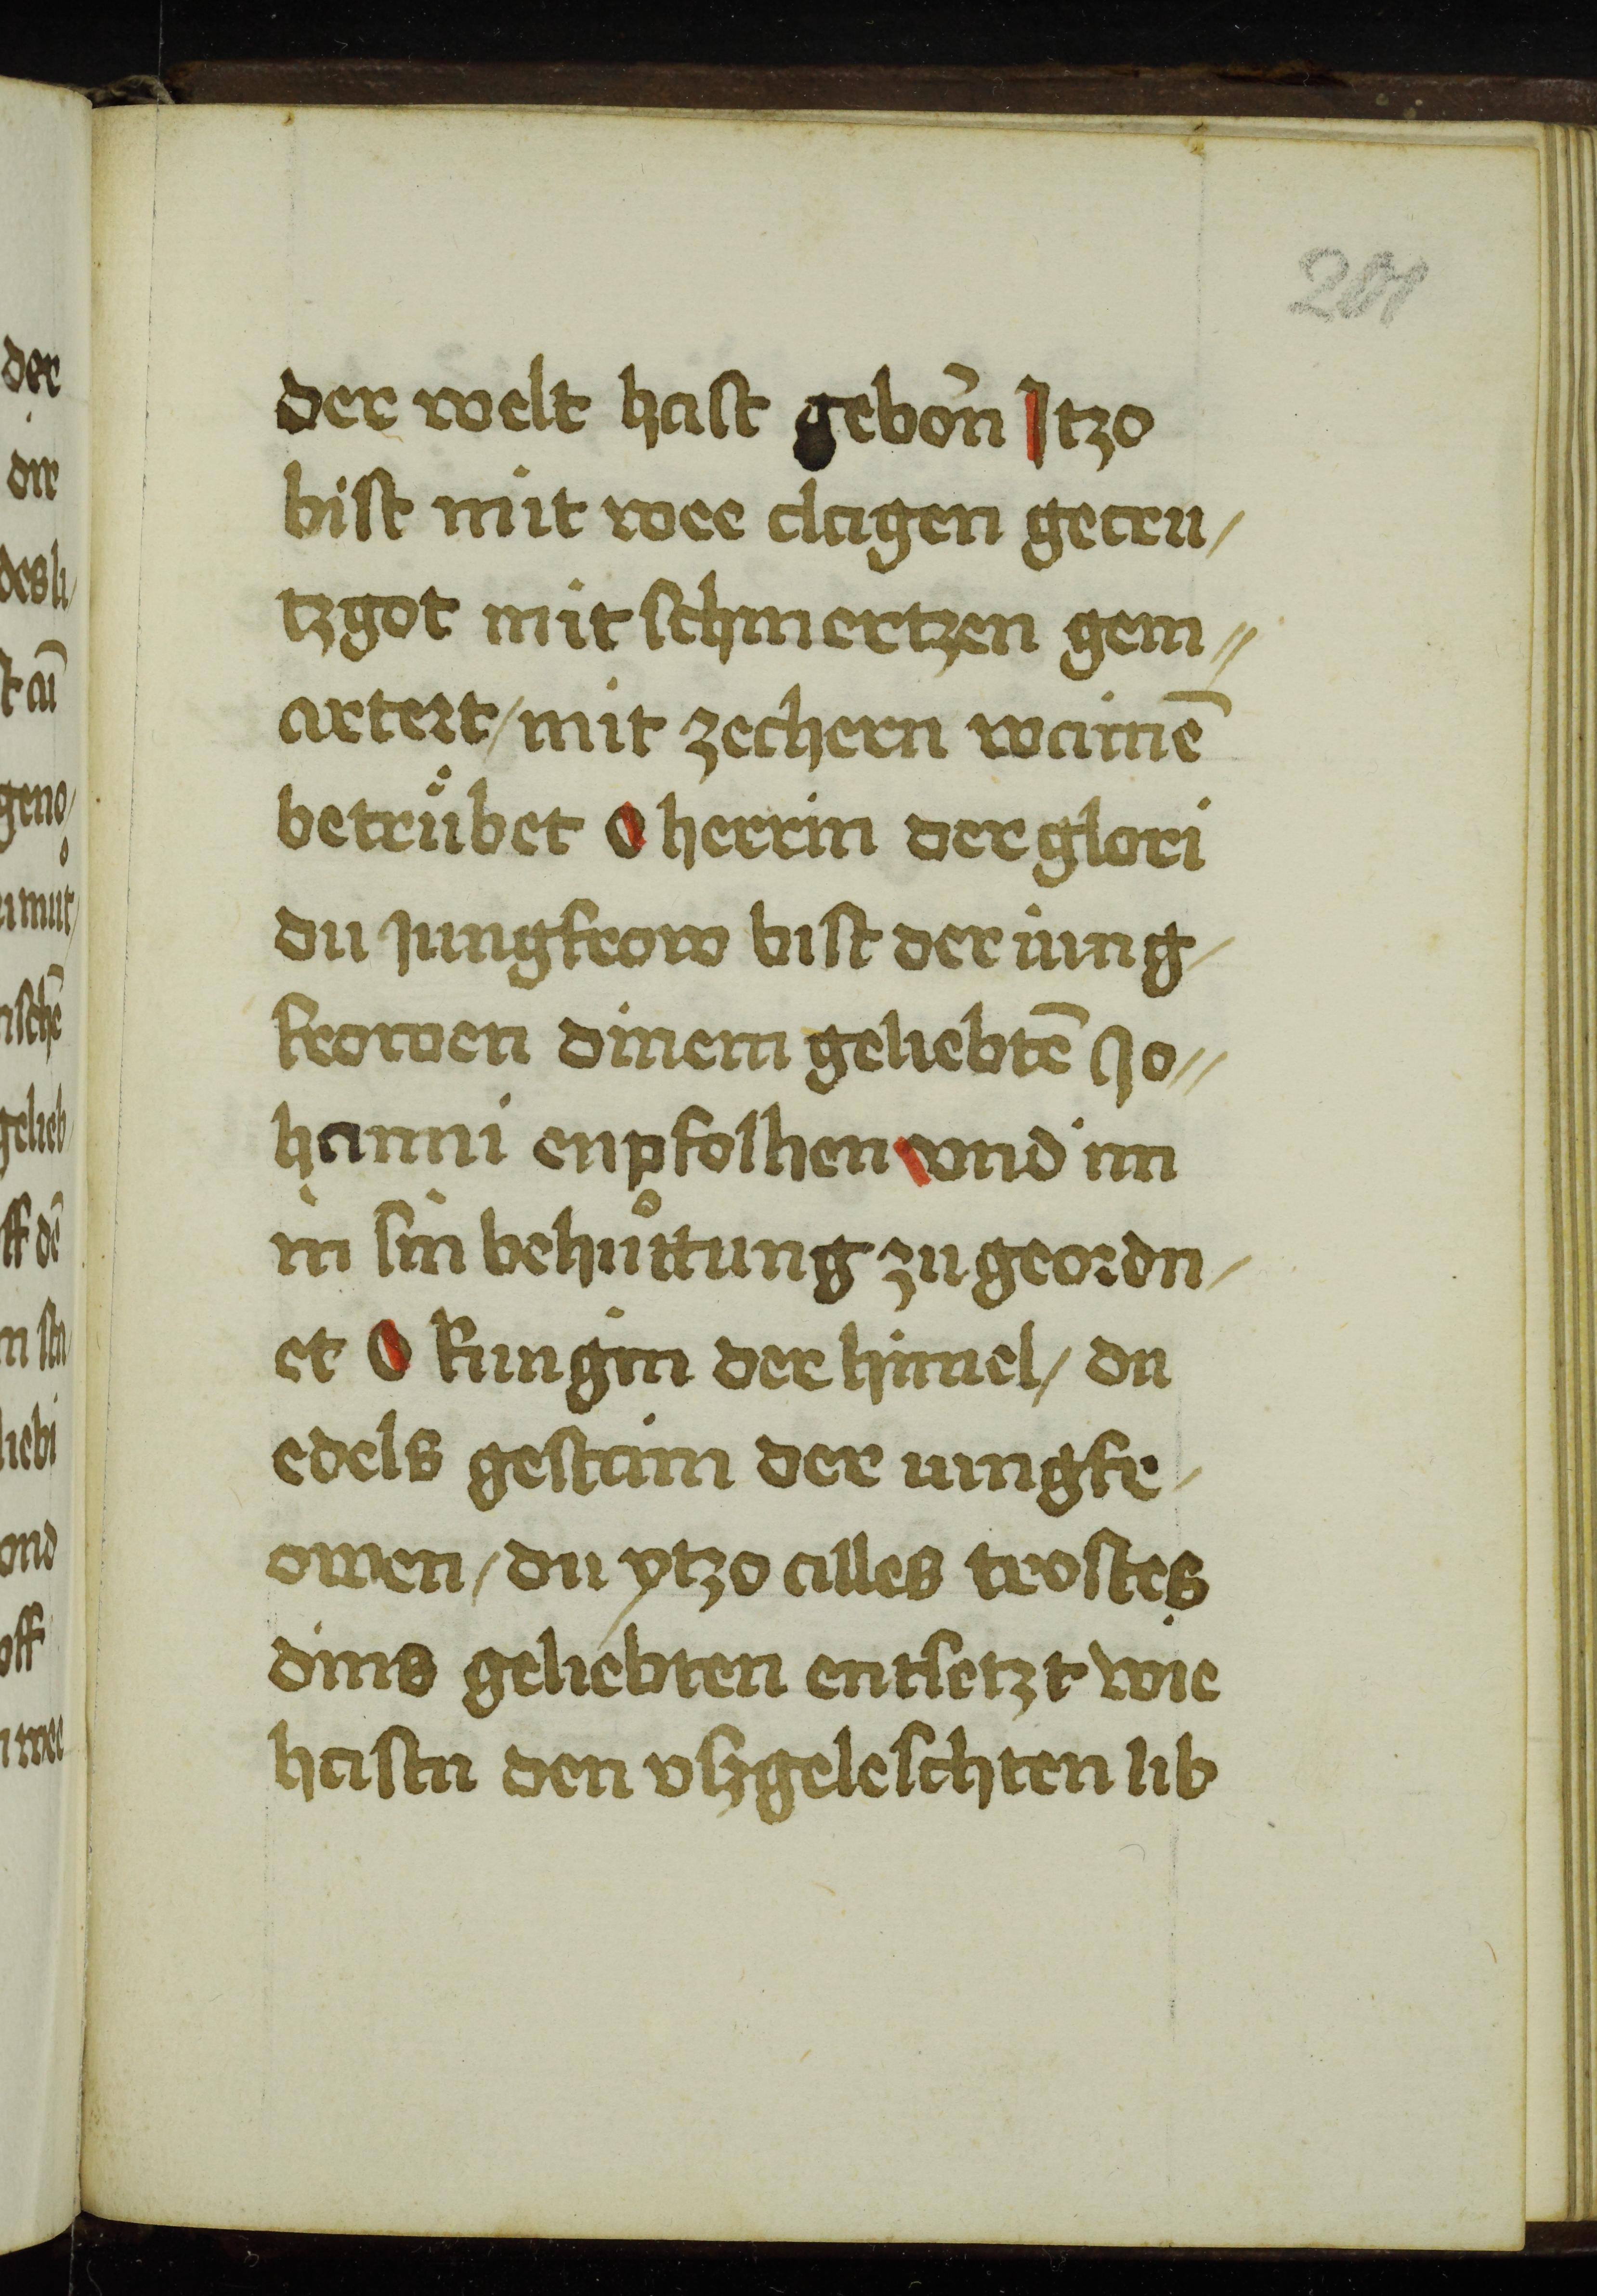 201
der welt hast gebor̄n Itzo
bist mit wee clagen gecru/
tzgot mit schmertzen gem//
artert/mit zechern wainē
betruͦbet O herrin der glori
du jungfrow bist der iung/
frowen dinem geliebtē Jo//
hanni enpfolhen vnd im
in sin behuͦttung zu geordn/
et O kungin der himel/ du
edels gestain der iungfr/
owen/du ytzo alles trostes
dins geliebten entsetzt wie
hastu den vszgeleschten lib